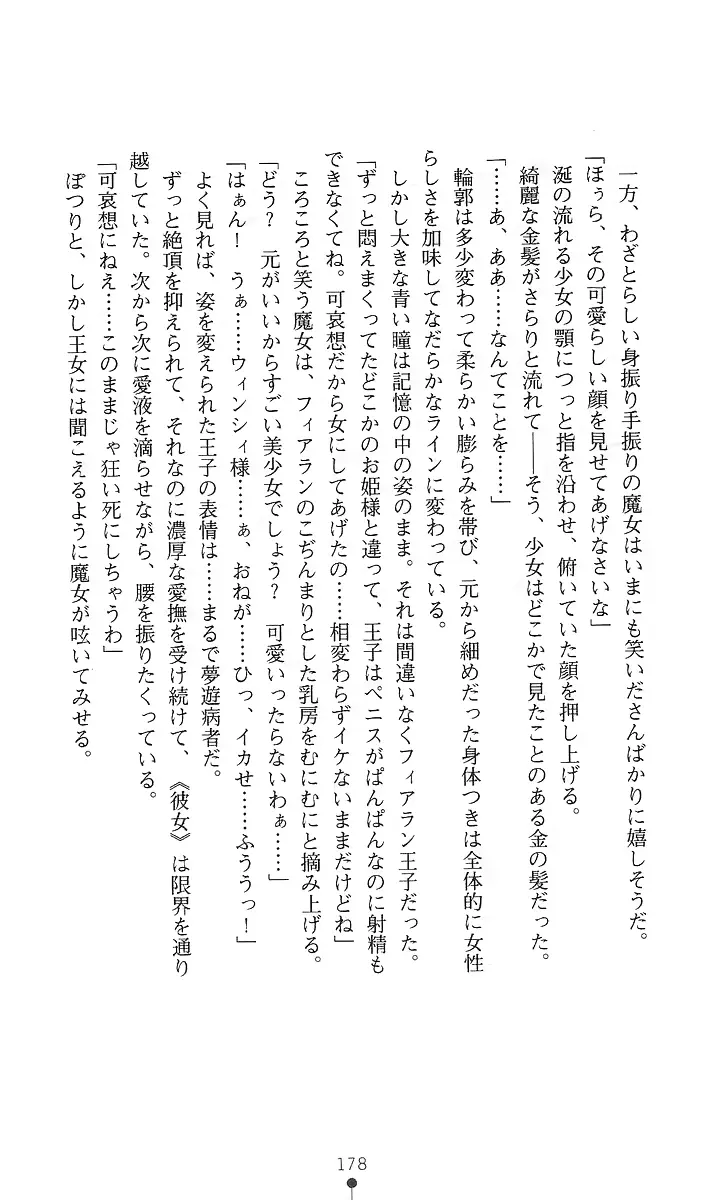 一方、わざとらしい身振り手振りの魔女はいまにも笑いださんばかりに嬉しそうだ。
「ほぅら、その可愛らしい顔を見せてあげなさいな」
涎の流れる少女の顎につっと指を沿わせ、俯いていた顔を押し上げる。
綺麗な金髪がさらりと流れて――そう、少女はどこかで見たことのある金の髪だった。
「……あ、ああ……なんてことを……」
輪郭は多少変わって柔らかい膨らみを帯び、元から細めだった身体つきは全体的に女性
らしさを加味してなだらかなラインに変わっている。
しかし大きな青い瞳は記憶の中の姿のまま。それは間違いなくフィアラン王子だった。
「ずっと悶えまくってたどこかのお姫様と違って、王子はペニスがぱんぱんなのに射精も
できなくてね。可哀想だから女にしてあげたの……相変わらずイケないままだけどね」
ころころと笑う魔女は、フィアランのこぢんまりとした乳房をむにむにと摘み上げる。
「どう？　元がいいからすごい美少女でしょう？　可愛いったらないわぁ……」
「はぁん！　うぁ……ウィンシィ様……ぁ、おねが……ひっ、イカせ……ふううっ！」
よく見れば、姿を変えられた王子の表情は……まるで夢遊病者だ。
ずっと絶頂を抑えられて、それなのに濃厚な愛撫を受け続けて、《彼女》は限界を通り
越していた。次から次に愛液を滴らせながら、腰を振りたくっている。
「可哀想にねえ……このままじゃ狂い死にしちゃうわ」
ぽつりと、しかし王女には聞こえるように魔女が呟いてみせる。
178